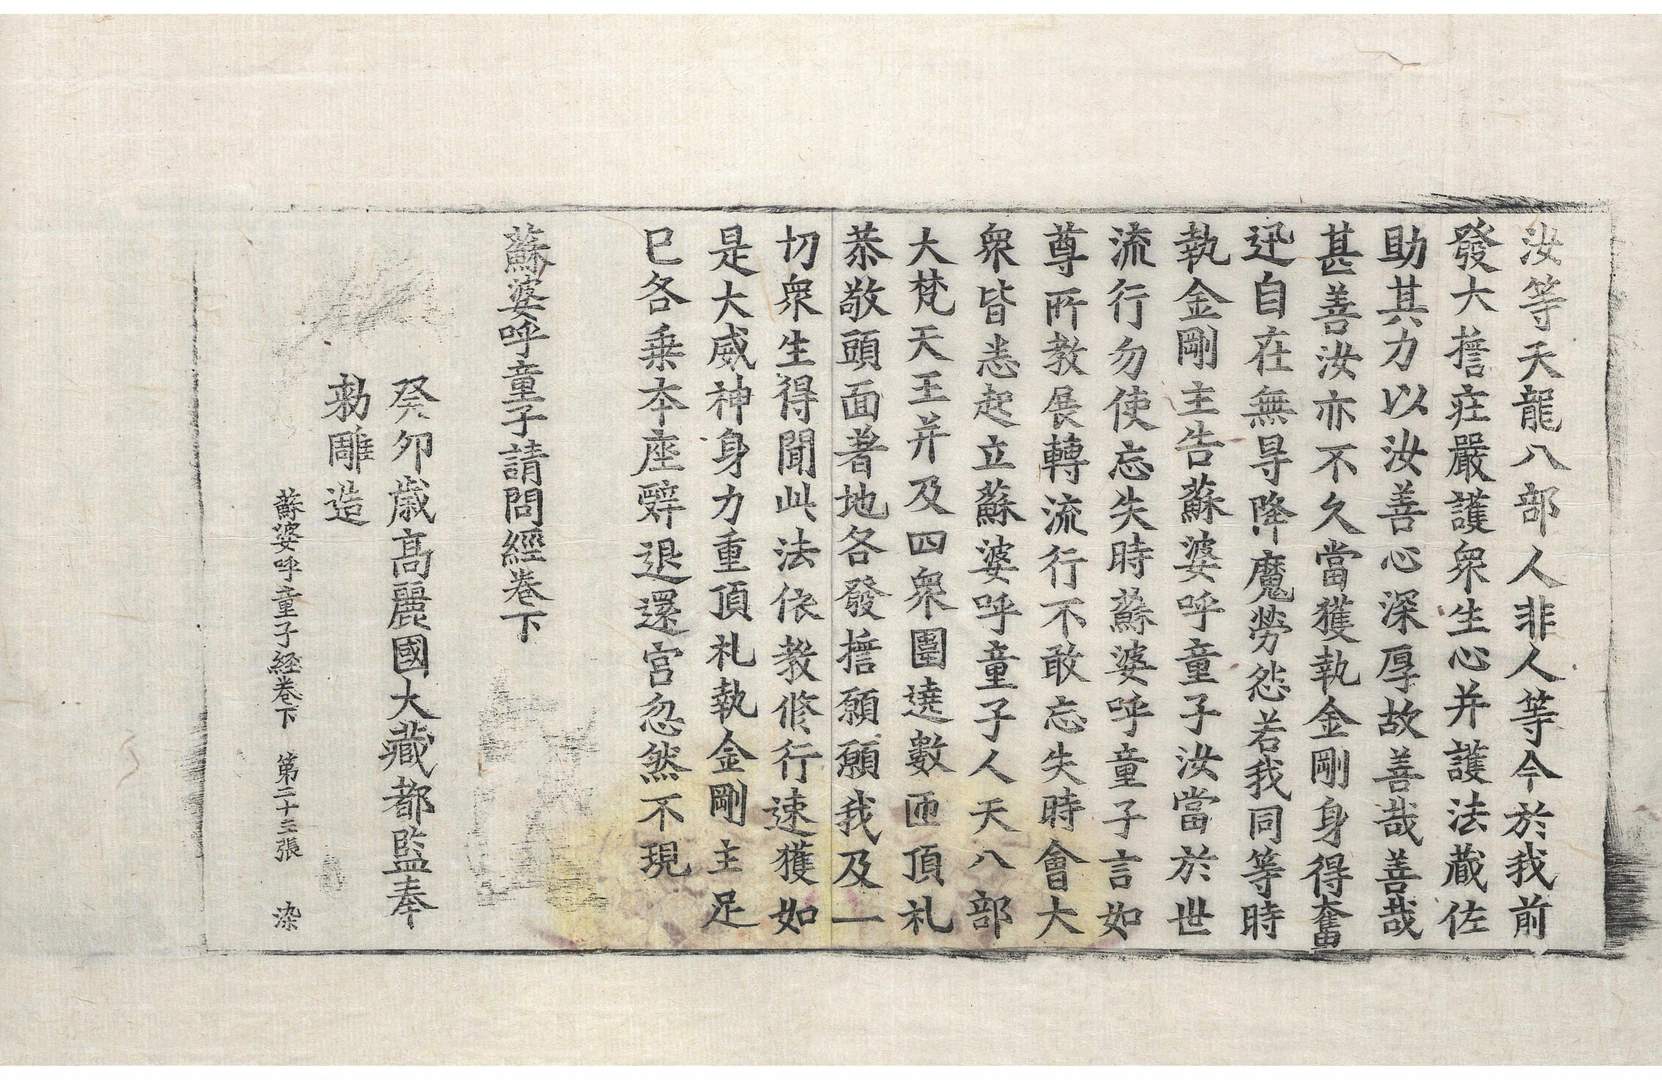 汝等天龍八部人非人等今於我前
發大擔莊嚴護衆生心并護法藏佐
助其力以汝善心深厚故善哉善哉
甚善汝亦不久當獲執金剛身得奮
迅自在無㝵降魔勞怨若我同等時
執金剛主告蘇婆呼童子汝當於世
流行勿使忘失時蘇婆呼童子言如
尊所教展轉流行不敢忘失時會大
衆皆悉起立蘇婆呼童子人天八部
大梵天王并及四衆圍遶數匝頂礼
恭敬頭面著地各發擔願願我及一
切衆生得聞此法依教修行速獲如
是大威神身力重頂礼執金剛主足
已各乗本座辤退還宫忽然不現
蘇婆呼童子請問經卷下
癸卯歳高麗國大藏都監奉
勑雕造
蘇婆呼童子経卷下 第二十三張 染